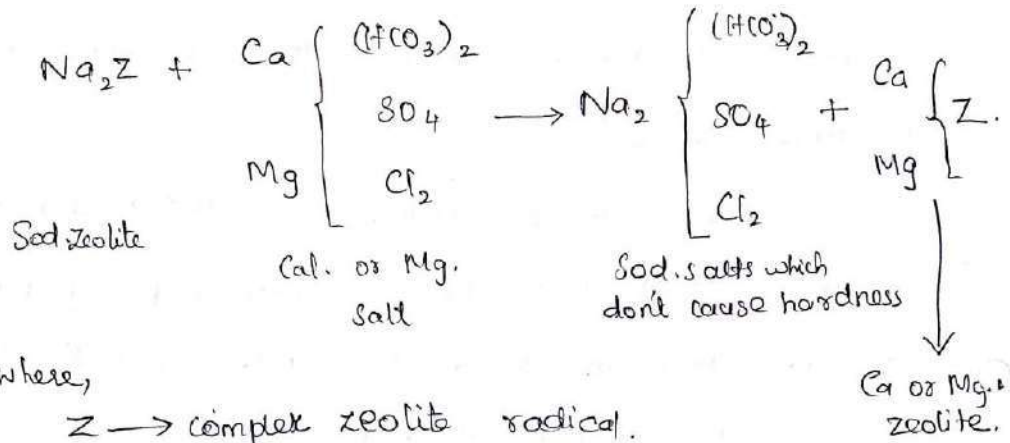 Na₂Z + Ca Mg { (HCO₃)₂ SO₄ Cl₂ ⟶ Na₂ { (HCO₃)₂ SO₄ Cl₂ + Ca Mg { Z.
Sod. zeolite
Cal. or Mg. salt
Sod. salts which don't cause hardness
Ca or Mg. zeolite.
where,
Z ⟶ complex zeolite radical.